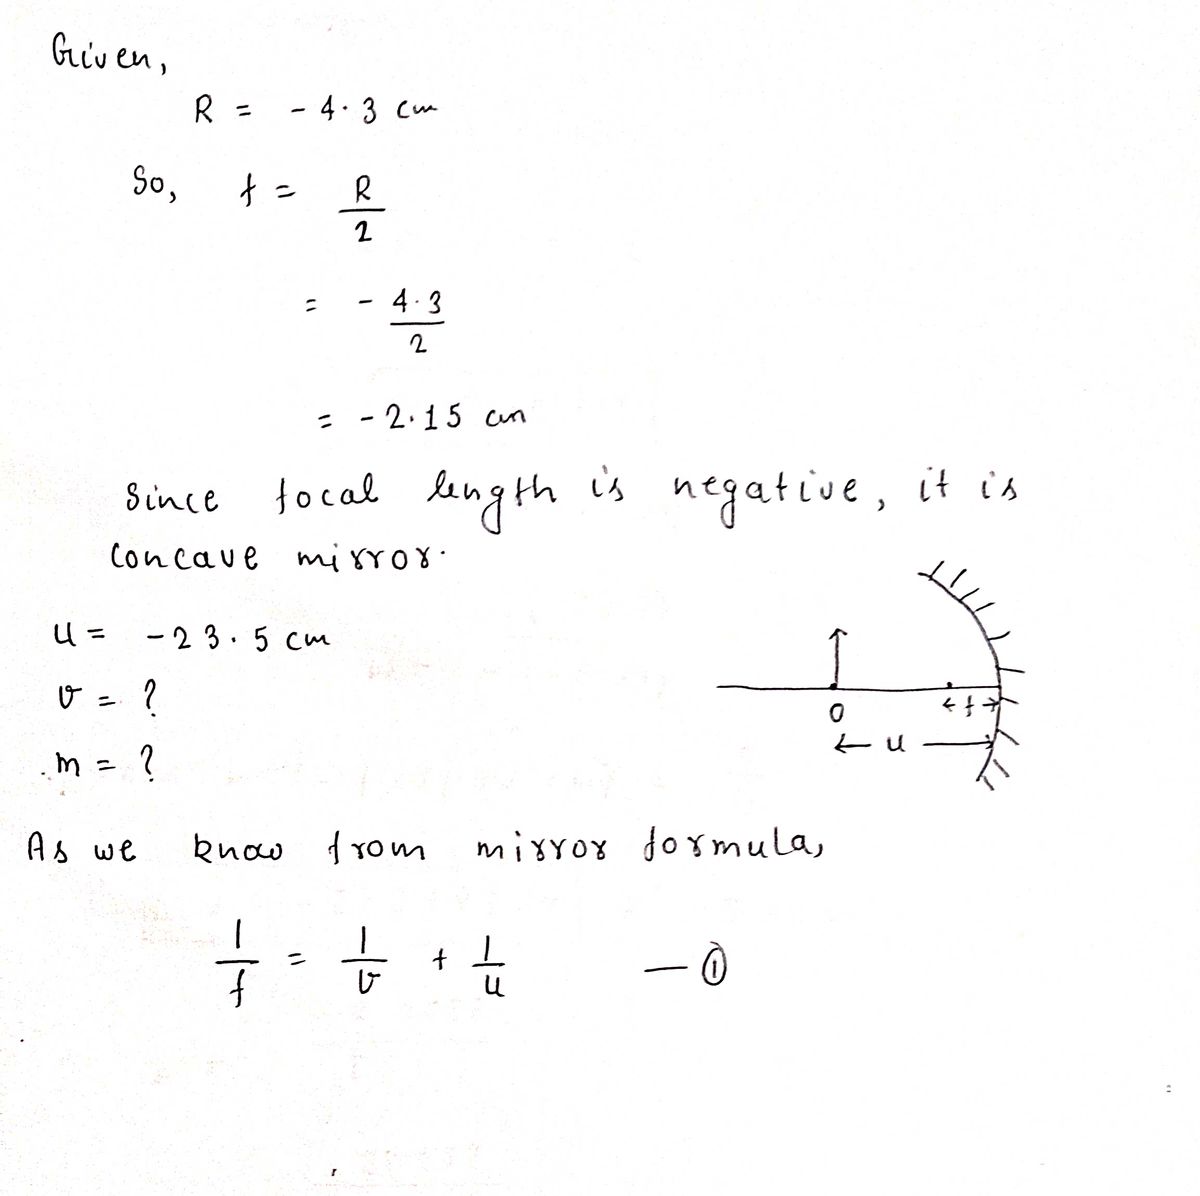 Given,
R = - 4.3 cm
So, f = R/2
= - 4.3/2
= - 2.15 cm
Since focal length is negative, it is
concave mirror.
u = - 23.5 cm
v = ?
m = ?
O
f
u
As we know from mirror formula,
1/f = 1/v + 1/u — ①